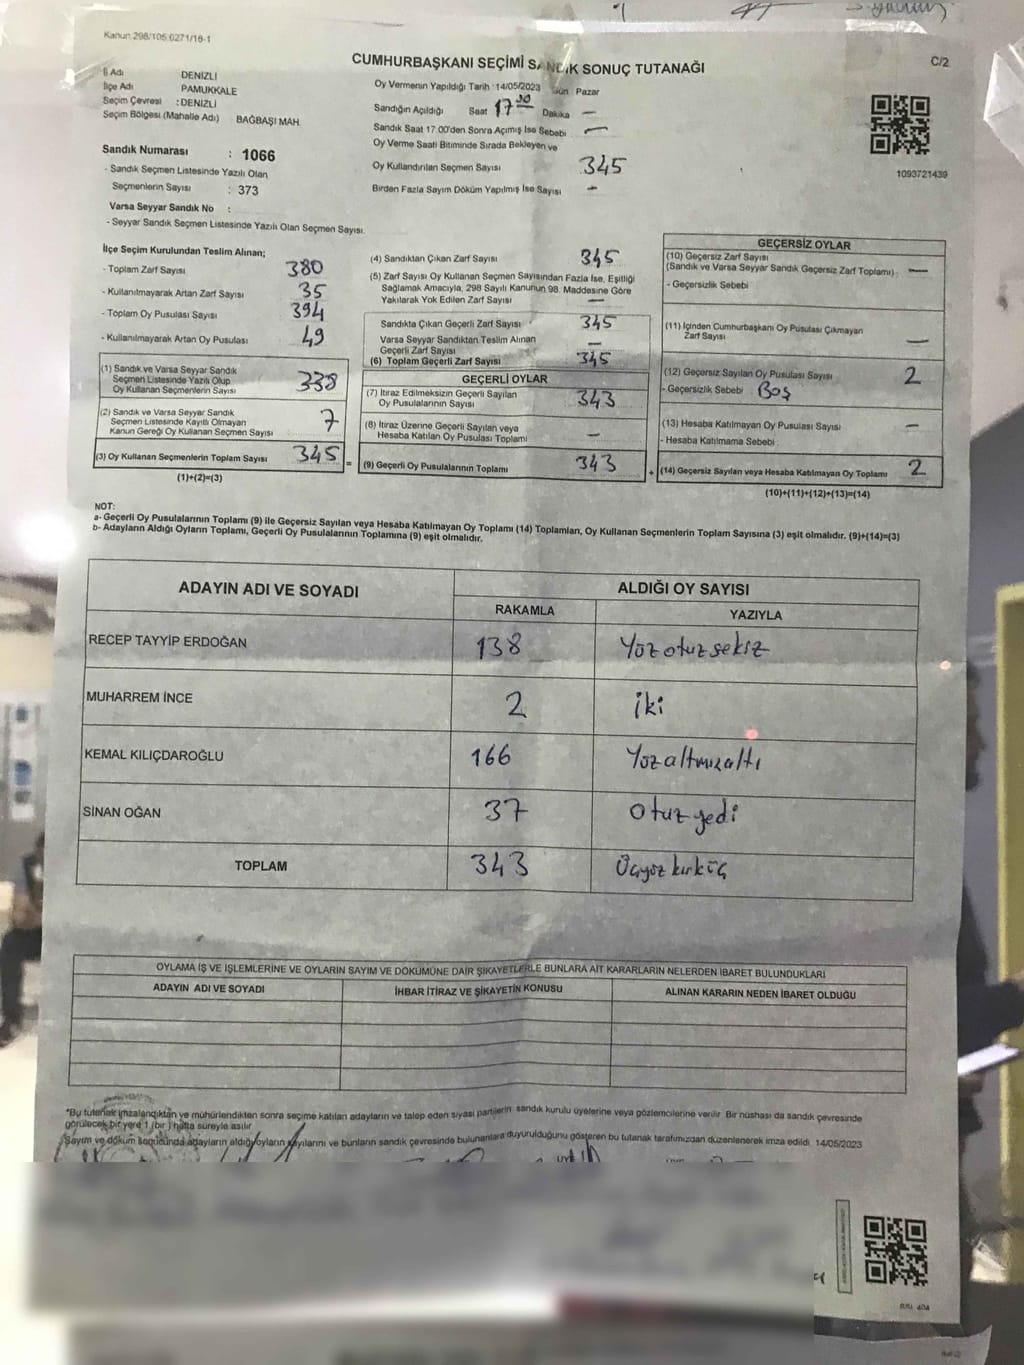 Kanun 298/105 6271/18-1
C/2
CUMHURBAŞKANI SEÇİMİ SANDIK SONUÇ TUTANAĞI
İl Adı DENİZLİ
İlçe Adı PAMUKKALE
Seçim Çevresi : DENİZLİ
Seçim Bölgesi (Mahalle Adı) BAĞBAŞI MAH.
Sandık Numarası : 1066
- Sandık Seçmen Listesinde Yazılı Olan
Seçmenlerin Sayısı : 373
Varsa Seyyar Sandık No :
- Seyyar Sandık Seçmen Listesinde Yazılı Olan Seçmen Sayısı.
Oy Vermenin Yapıldığı Tarih : 14/05/2023 Gün Pazar
Sandığın Açıldığı Saat 17 30 Dakika —
Sandık Saat 17:00'den Sonra Açımış İse Sebebi —
Oy Verme Saati Bitiminde Sırada Bekleyen ve
Oy Kullandırılan Seçmen Sayısı 345
Birden Fazla Sayım Döküm Yapılmış İse Sayısı —
1093721439
İlçe Seçim Kurulundan Teslim Alınan;
- Toplam Zarf Sayısı 380
- Kullanılmayarak Artan Zarf Sayısı 35
- Toplam Oy Pusulası Sayısı 394
- Kullanılmayarak Artan Oy Pusulası 49
(1) Sandık ve Varsa Seyyar Sandık
Seçmen Listesinde Yazılı Olup
Oy Kullanan Seçmenlerin Sayısı 338
(2) Sandık ve Varsa Seyyar Sandık
Seçmen Listesinde Kayıtlı Olmayan
Kanun Gereği Oy Kullanan Seçmen Sayısı 7
(3) Oy Kullanan Seçmenlerin Toplam Sayısı 345 =
(1)+(2)=(3)
(4) Sandıktan Çıkan Zarf Sayısı 345
(5) Zarf Sayısı Oy Kullanan Seçmen Sayısından Fazla İse, Eşitliği
Sağlamak Amacıyla, 298 Sayılı Kanunun 98. Maddesine Göre
Yakılarak Yok Edilen Zarf Sayısı —
Sandıkta Çıkan Geçerli Zarf Sayısı 345
Varsa Seyyar Sandıktan Teslim Alınan
Geçerli Zarf Sayısı —
(6) Toplam Geçerli Zarf Sayısı 345
GEÇERLİ OYLAR
(7) İtiraz Edilmeksizin Geçerli Sayılan
Oy Pusulalarının Sayısı 343
(8) İtiraz Üzerine Geçerli Sayılan veya
Hesaba Katılan Oy Pusulası Toplamı —
(9) Geçerli Oy Pusulalarının Toplamı 343 +
GEÇERSİZ OYLAR
(10) Geçersiz Zarf Sayısı
(Sandık ve Varsa Seyyar Sandık Geçersiz Zarf Toplamı) : —
- Geçersizlik Sebebi
(11) İçinden Cumhurbaşkanı Oy Pusulası Çıkmayan
Zarf Sayısı —
(12) Geçersiz Sayılan Oy Pusulası Sayısı 2
- Geçersizlik Sebebi Boş
(13) Hesaba Katılmayan Oy Pusulası Sayısı —
- Hesaba Katılmama Sebebi :
(14) Geçersiz Sayılan veya Hesaba Katılmayan Oy Toplamı 2
(10)+(11)+(12)+(13)=(14)
NOT:
a- Geçerli Oy Pusulalarının Toplamı (9) ile Geçersiz Sayılan veya Hesaba Katılmayan Oy Toplamı (14) Toplamları, Oy Kullanan Seçmenlerin Toplam Sayısına (3) eşit olmalıdır. (9)+(14)=(3)
b- Adayların Aldığı Oyların Toplamı, Geçerli Oy Pusulalarının Toplamına (9) eşit olmalıdır.
ADAYIN ADI VE SOYADI ALDIĞI OY SAYISI
RAKAMLA YAZIYLA
RECEP TAYYİP ERDOĞAN 138 Yüzotuzsekiz
MUHARREM İNCE 2 iki
KEMAL KILIÇDAROĞLU 166 Yüzaltmışaltı
SİNAN OĞAN 37 Otuzyedi
TOPLAM 343 Üçyüzkırküç
OYLAMA İŞ VE İŞLEMLERİNE VE OYLARIN SAYIM VE DÖKÜMÜNE DAİR ŞİKAYETLERLE BUNLARA AİT KARARLARIN NELERDEN İBARET BULUNDUKLARI
ADAYIN ADI VE SOYADI İHBAR İTİRAZ VE ŞİKAYETİN KONUSU ALINAN KARARIN NEDEN İBARET OLDUĞU
*Bu tutanak imzalandıktan ve mühürlendikten sonra seçime katılan adayların ve talep eden siyasi partilerin sandık kurulu üyelerine veya gözlemcilerine verilir. Bir nüshası da sandık çevresinde
görülecek bir yere 1 (bir ) hafta süreyle asılır.
Sayım ve döküm sonucunda adayların aldığı oyların sayılarını ve bunların sandık çevresinde bulunanlara duyurulduğunu gösteren bu tutanak tarafımızdan düzenlenerek imza edildi. 14/05/2023